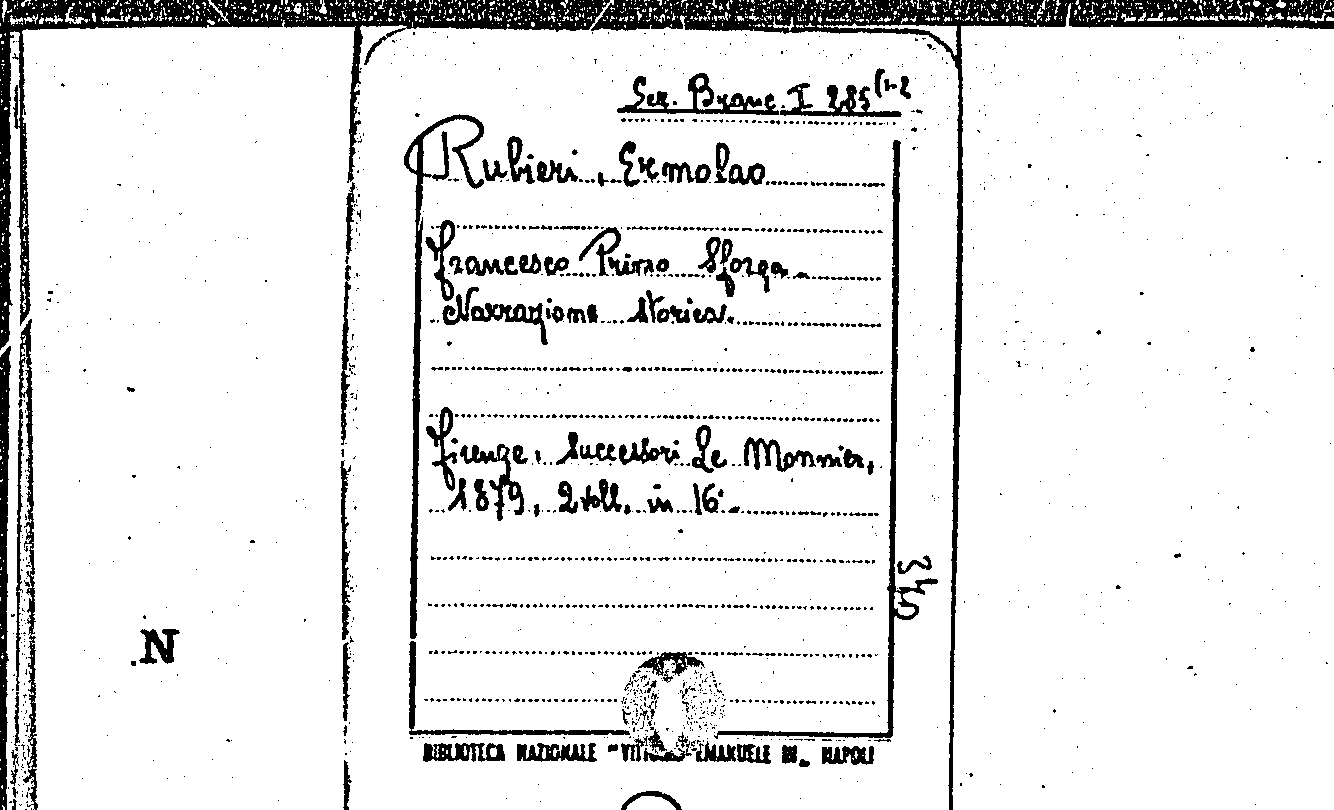 Sez. Branc. I 285(1-2
Rubieri, Ermolao
Francesco Primo Sforza.
Narrazione storica.
Firenze, Successori Le Monnier,
1879, 2 voll. in 16°.
345
N
BIBLIOTECA NAZIONALE "VITTORIO EMANUELE III" NAPOLI